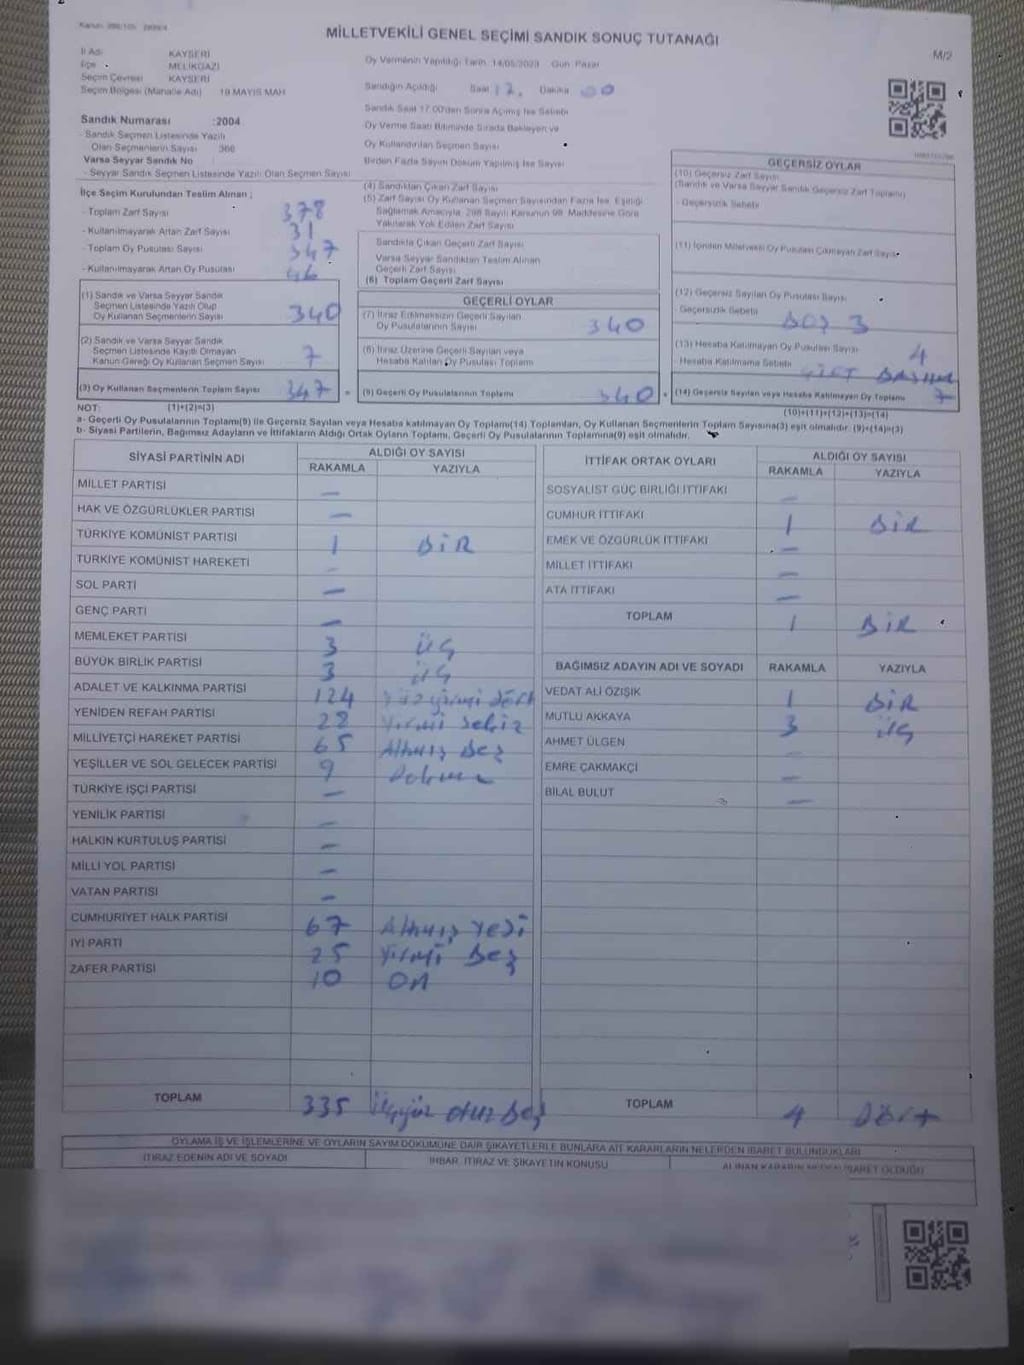 MİLLETVEKİLİ GENEL SEÇİMİ SANDIK SONUÇ TUTANAĞI
M/2
İl Adı KAYSERİ
İlçe MELİKGAZİ
Seçim Çevresi KAYSERİ
Seçim Bölgesi (Mahalle Adı) 19 MAYIS MAH
Oy Vermenin Yapıldığı Tarih: 14/05/2023 Gün: Pazar
Sandığın Açıldığı Saat 17. Dakika 00
Sandık Saat 17.00'den Sonra Açılmış İse Sebebi
Oy Verme Saati Bitiminde Sırada Bekleyen ve
Oy Kullandırılan Seçmen Sayısı
Birden Fazla Sayım Döküm Yapılmış İse Sayısı
Sandık Numarası :2004
- Sandık Seçmen Listesinde Yazılı
Olan Seçmenlerin Sayısı 366
Varsa Seyyar Sandık No
- Seyyar Sandık Seçmen Listesinde Yazılı Olan Seçmen Sayısı
İlçe Seçim Kurulundan Teslim Alınan ;
- Toplam Zarf Sayısı 378
- Kullanılmayarak Artan Zarf Sayısı 31
- Toplam Oy Pusulası Sayısı 347
- Kullanılmayarak Artan Oy Pusulası 46
(1) Sandık ve Varsa Seyyar Sandık
Seçmen Listesinde Yazılı Olup
Oy Kullanan Seçmenlerin Sayısı 340
(2) Sandık ve Varsa Seyyar Sandık
Seçmen Listesinde Kayıtlı Olmayan
Kanun Gereği Oy Kullanan Seçmen Sayısı 7
(3) Oy Kullanan Seçmenlerin Toplam Sayısı 347 =
(4) Sandıktan Çıkan Zarf Sayısı
(5) Zarf Sayısı Oy Kullanan Seçmen Sayısından Fazla İse, Eşitliği
Sağlamak Amacıyla, 298 Sayılı Kanunun 98. Maddesine Göre
Yakılarak Yok Edilen Zarf Sayısı
Sandıkta Çıkan Geçerli Zarf Sayısı
Varsa Seyyar Sandıktan Teslim Alınan
Geçerli Zarf Sayısı
(6) Toplam Geçerli Zarf Sayısı
GEÇERLİ OYLAR
(7) İtiraz Edilmeksizin Geçerli Sayılan
Oy Pusulalarının Sayısı 340
(8) İtiraz Üzerine Geçerli Sayılan veya
Hesaba Katılan Oy Pusulası Toplamı
(9) Geçerli Oy Pusulalarının Toplamı 340 +
GEÇERSİZ OYLAR
(10) Geçersiz Zarf Sayısı
(Sandık ve Varsa Seyyar Sandık Geçersiz Zarf Toplamı)
- Geçersizlik Sebebi
(11) İçinden Milletvekili Oy Pusulası Çıkmayan Zarf Sayısı
(12) Geçersiz Sayılan Oy Pusulası Sayısı
- Geçersizlik Sebebi BOŞ 3
(13) Hesaba Katılmayan Oy Pusulası Sayısı 4
Hesaba Katılmama Sebebi
(14) Geçersiz Sayılan veya Hesaba Katılmayan Oy Toplamı 7
NOT: (1)+(2)=(3)
(10)+(11)+(12)+(13)=(14)
a- Geçerli Oy Pusulasının Toplamı(9) ile Geçersiz Sayılan veya Hesaba katılmayan Oy Toplamı(14) Toplamları, Oy Kullanan Seçmenlerin Toplam Sayısına(3) eşit olmalıdır. (9)+(14)=(3)
b- Siyasi Partilerin, Bağımsız Adayların ve İttifakların Aldığı Ortak Oyların Toplamı, Geçerli Oy Pusulalarının Toplamına(9) eşit olmalıdır.
SİYASİ PARTİNİN ADI ALDIĞI OY SAYISI
RAKAMLA YAZIYLA
MİLLET PARTİSİ —
HAK VE ÖZGÜRLÜKLER PARTİSİ —
TÜRKİYE KOMÜNİST PARTİSİ 1 BİR
TÜRKİYE KOMÜNİST HAREKETİ —
SOL PARTİ —
GENÇ PARTİ —
MEMLEKET PARTİSİ 3 ÜÇ
BÜYÜK BİRLİK PARTİSİ 3 ÜÇ
ADALET VE KALKINMA PARTİSİ 124 Yüz yirmi dört
YENİDEN REFAH PARTİSİ 28 Yirmi sekiz
MİLLİYETÇİ HAREKET PARTİSİ 65 Altmış Beş
YEŞİLLER VE SOL GELECEK PARTİSİ 9 Dokuz
TÜRKİYE İŞÇİ PARTİSİ —
YENİLİK PARTİSİ —
HALKIN KURTULUŞ PARTİSİ —
MİLLİ YOL PARTİSİ —
VATAN PARTİSİ —
CUMHURİYET HALK PARTİSİ 67 Altmış Yedi
İYİ PARTİ 25 Yirmi Beş
ZAFER PARTİSİ 10 ON
TOPLAM 335 Üçyüz otuz Beş
İTTİFAK ORTAK OYLARI ALDIĞI OY SAYISI
RAKAMLA YAZIYLA
SOSYALİST GÜÇ BİRLİĞİ İTTİFAKI —
CUMHUR İTTİFAKI 1 BİR
EMEK VE ÖZGÜRLÜK İTTİFAKI —
MİLLET İTTİFAKI —
ATA İTTİFAKI —
TOPLAM 1 BİR
BAĞIMSIZ ADAYIN ADI VE SOYADI RAKAMLA YAZIYLA
VEDAT ALİ ÖZIŞIK 1 BİR
MUTLU AKKAYA 3 ÜÇ
AHMET ÜLGEN —
EMRE ÇAKMAKÇI —
BİLAL BULUT —
TOPLAM 4 Dört
OYLAMA İŞ VE İŞLEMLERİNE VE OYLARIN SAYIM DÖKÜMÜNE DAİR ŞİKAYETLERLE BUNLARA AİT KARARLARIN NELERDEN İBARET BULUNDUKLARI
İTİRAZ EDENİN ADI VE SOYADI İHBAR, İTİRAZ VE ŞİKAYETİN KONUSU ALINAN KARARIN NEDEN İBARET OLDUĞU